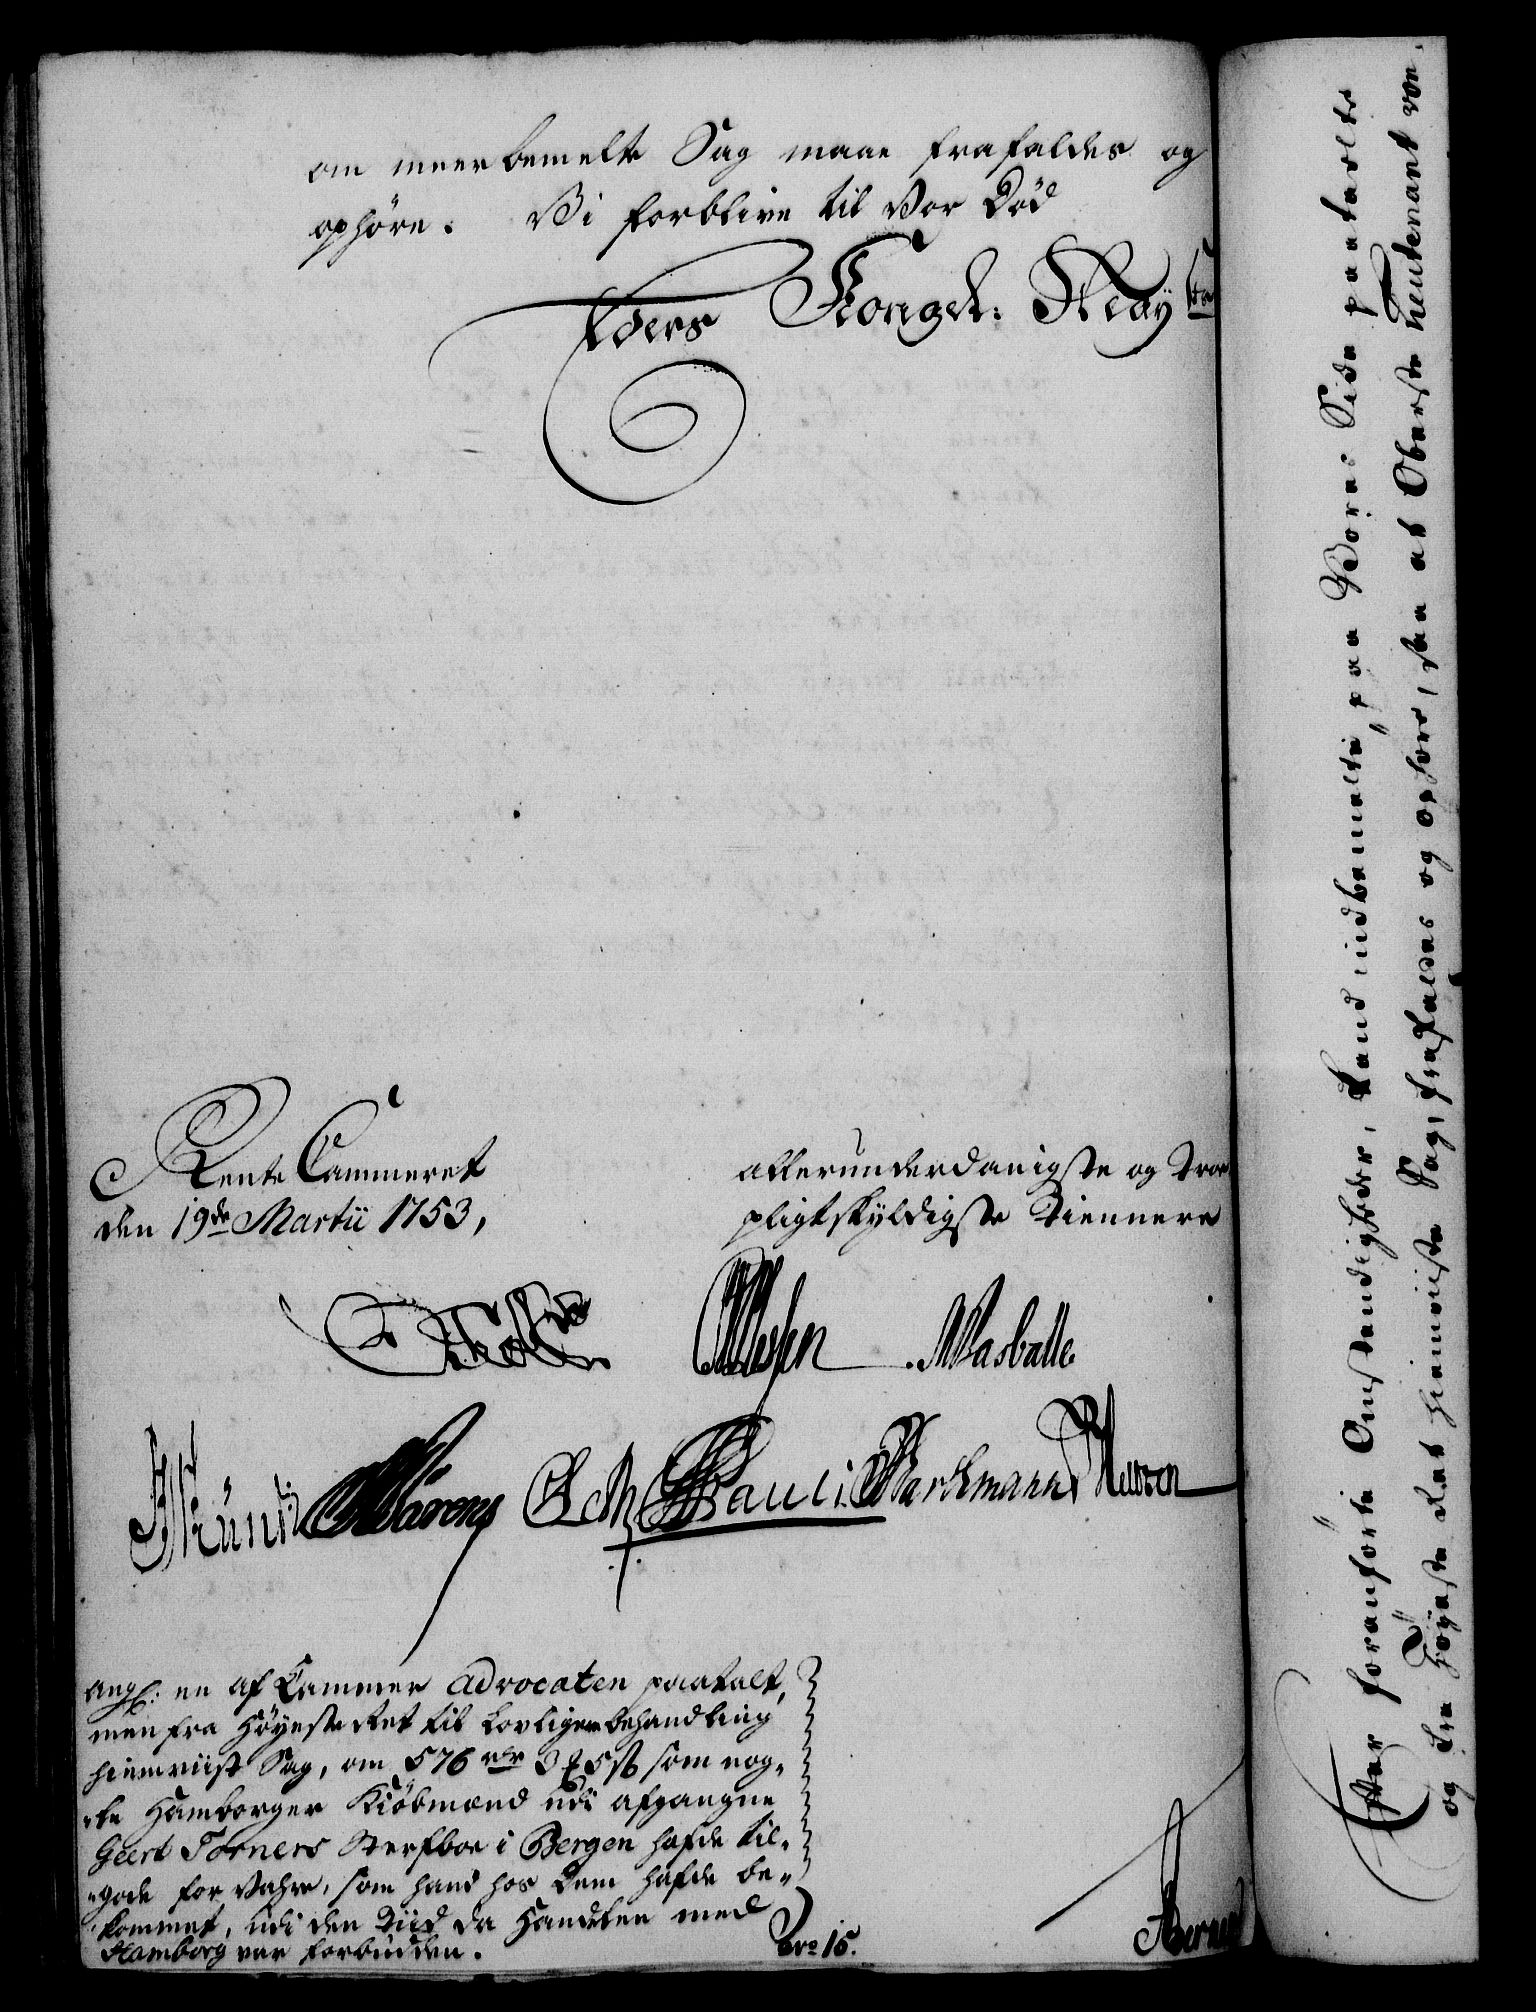 om meerbemelte Sag maae frafaldes og
ophöre. Vi forblive til Vor Död
Eders Kongel: May
Rente Cammeret
den 19de Martii 1753,
allerunderdanigste og Troe
pligtskyldigste Tiennere
Wasballe
Pauli
ang: en af Cammer Advocaten paatalt,
men fra Höyeste Ret til Lovligere behandling
hiemviist Sag, om 576 rdr 3 ℔ 5 ß som nog-
-le Hamborger Kiöbmænd udi afgangne
Geert Törners Sterfboe i Bergen hafde til-
-gode for Vahre, som hand hos dem hafde be-
-kommet, udi den Tiid da Handelen med
Hamborg var forbudden.
Nro 15.
Efter foranförte Omstendigheder, kand indbemelte, paa Vores Side paatalte
og fra Höyeste Ret hiemviiste Sag, frafaldes og ophöre, saa at Oberste Lieutenant von